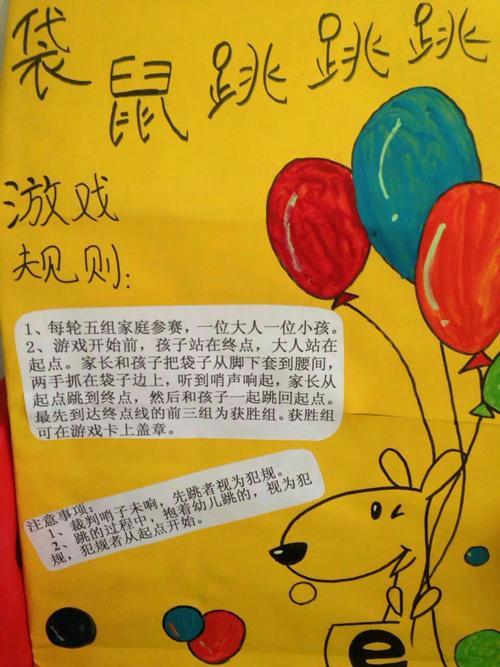 袋鼠跳跳跳
游戏
规则:
1、每轮五组家庭参赛，一位大人一位小孩。
2、游戏开始前，孩子站在终点，大人站在
起点。家长和孩子把袋子从脚下套到腰间，
两手抓在袋子边上，听到哨声响起，家长从
起点跳到终点，然后和孩子一起跳回起点。
最先到达终点线的前三组为获胜组。获胜组
可在游戏卡上盖章。
注意事项：
1、裁判哨子未响，先跳者视为犯规。
2、跳的过程中，抱着幼儿跳的，视为犯
规，犯规者从起点开始。
e